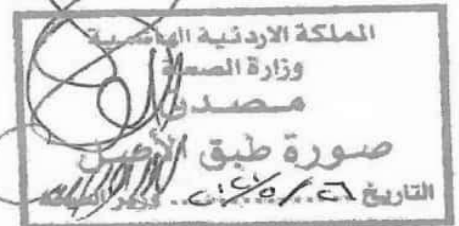 المملكة الاردنية الهاشمية
وزارة الصحة
مصدق
صورة طبق الأصل
التاريخ ......... وزير الصحة